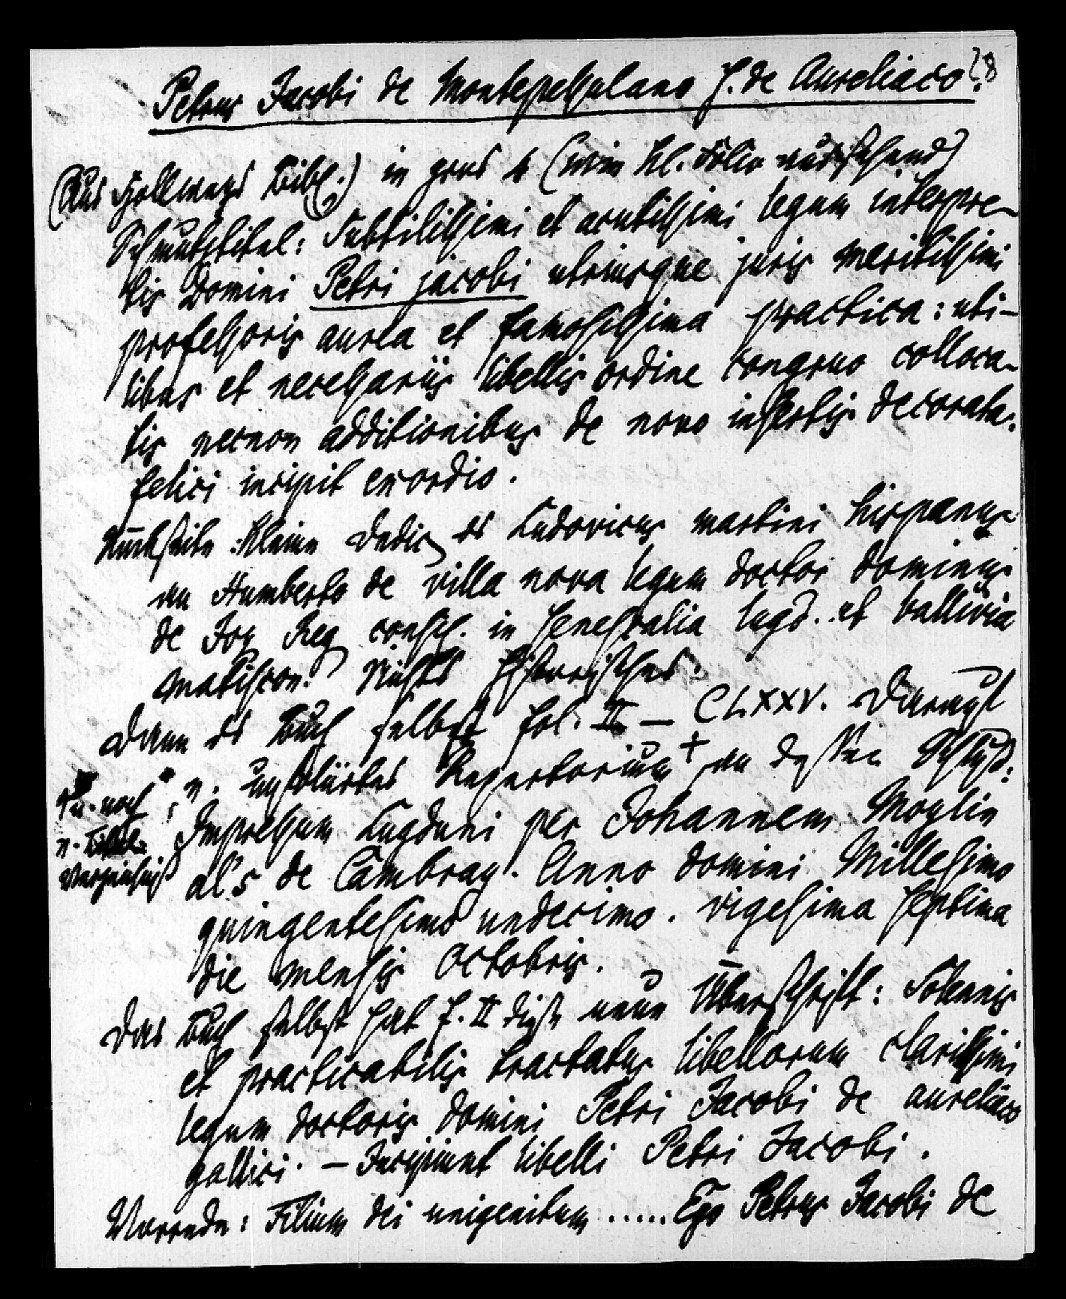 28
Petrus Jacobi de Montepessulano s. de Aureliaco.
(Aus Hollwegs Bibl.) in gros 4 (wie kl. Folio aussehend)
Schmutztitel: Subtilissimi et acutissimi legum interpre-
tis Domini Petri jacobi utriusque juris meritissimi
professoris aurea et famosissima practica: uti-
libus et necessariis libellis ordine congruo colloca-
tis necnon additionibus de novo insertis decorata.
felici incipit exordio.
Rückseite: kleine Dedic ds Ludovicus martini hispanus
an Humberto de villa nova legum doctor dominus
de Joy Reg consil. in senescalia lugd. et ballivia
matiscon. Nichts historisches.
Dann ds Buch selbst fol. II — CLXXV. Darauf
n. Repertorium + an dessen Schluß:
Impressum Lugduni per Johannem Moylin
als de Cambray. Anno domini Millesimo
quingentesimo undecimo. vigesima septima
die mensis octobris.
Das Buch selbst hat f. II diese neue Überschrift: Solennis
et practicabilis tractatus libellorum clarissimi
legum doctoris domini Petri Jacobi de aureliaco
gallici. — Incipiunt libelli Petri Jacobi.
Vorrede: Filium dei unigenitum ..... Ego Petrus Jacobi de
+ u. noch
n. Titel
Verzeichniß